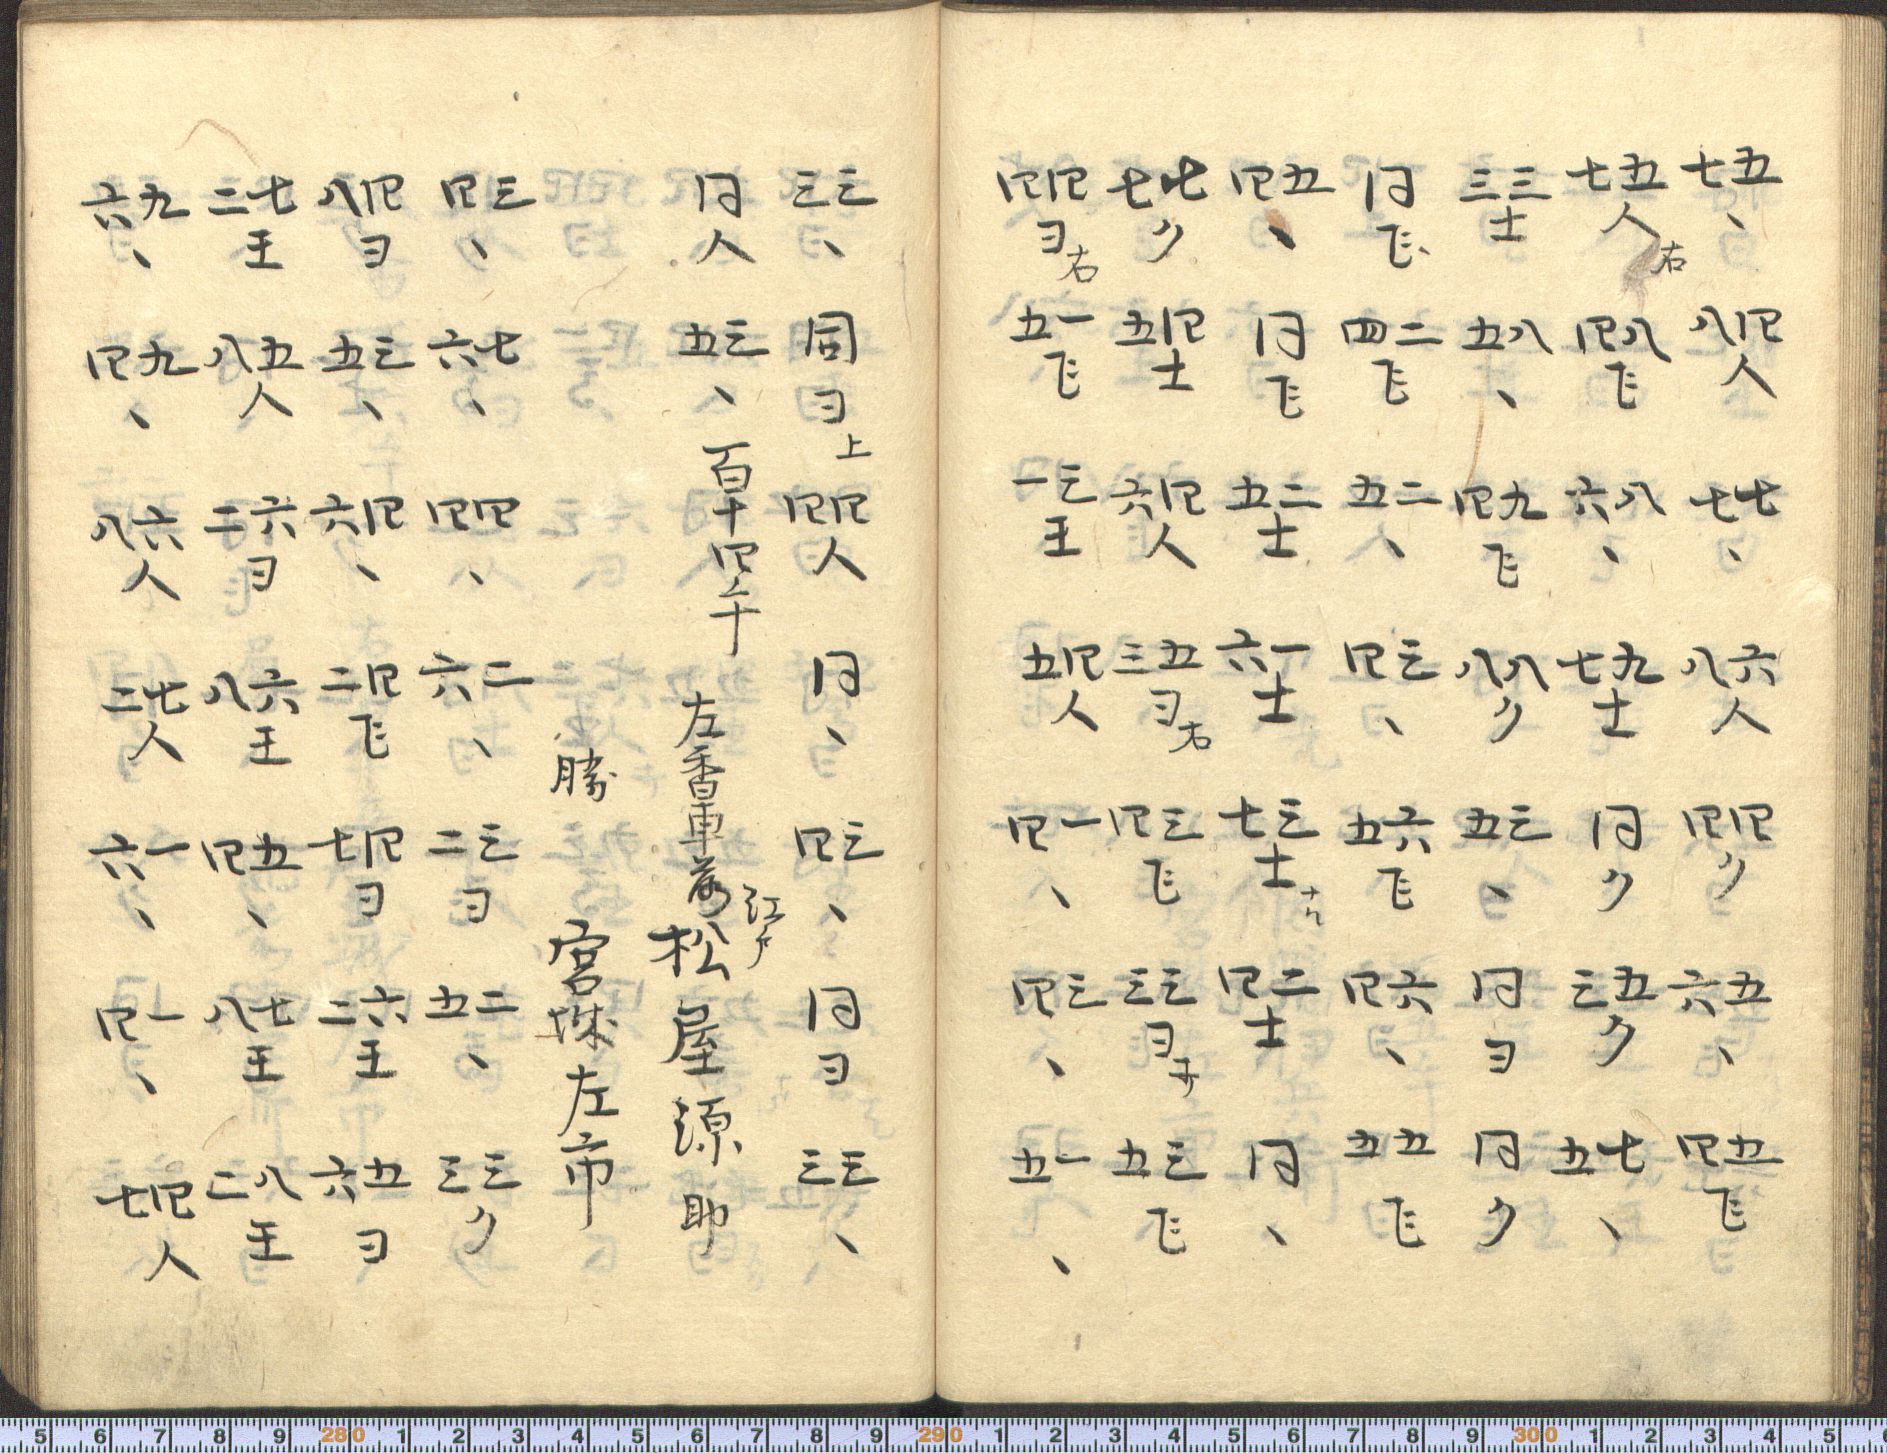 七五、 八四人 七七、 八六人 四四ク 六五、 四五飞
七五人右 四八飞 六八、 七九士 同ク 三五ク 五七、
三三士 五八、 四九飞 八八ク 五三、 同ヨ 同ク
同飞 四二飞 五二、 四三、 五六飞 四六、 五五飞
四五、 同飞 五二士 六一士 七三士 四二士 同、
七七ク 五四士 六四人 三五ヨ右 四三飞 三三ヨ 五三飞
四四ヨ右 五一飞 一三王 五四人 四一、 四三、 五一、
三三、 同ヨ上 四四人 同、 四三、 同ヨ 三三、
同人 五三、 百十四手
左香車落 江戸 松屋源助
勝 宮城左市
四三、 六七、 四四、 六二、 二三ヨ 五二、 三三ク
八四ヨ 五三、 六四、 二四飞 七四ヨ 二六王 六五ヨ
二七王 八五人 二六ヨ 八六王 四五、 八七王 二八王
六九、 四九、 八六人 二七人 六一、 四一、 七四人